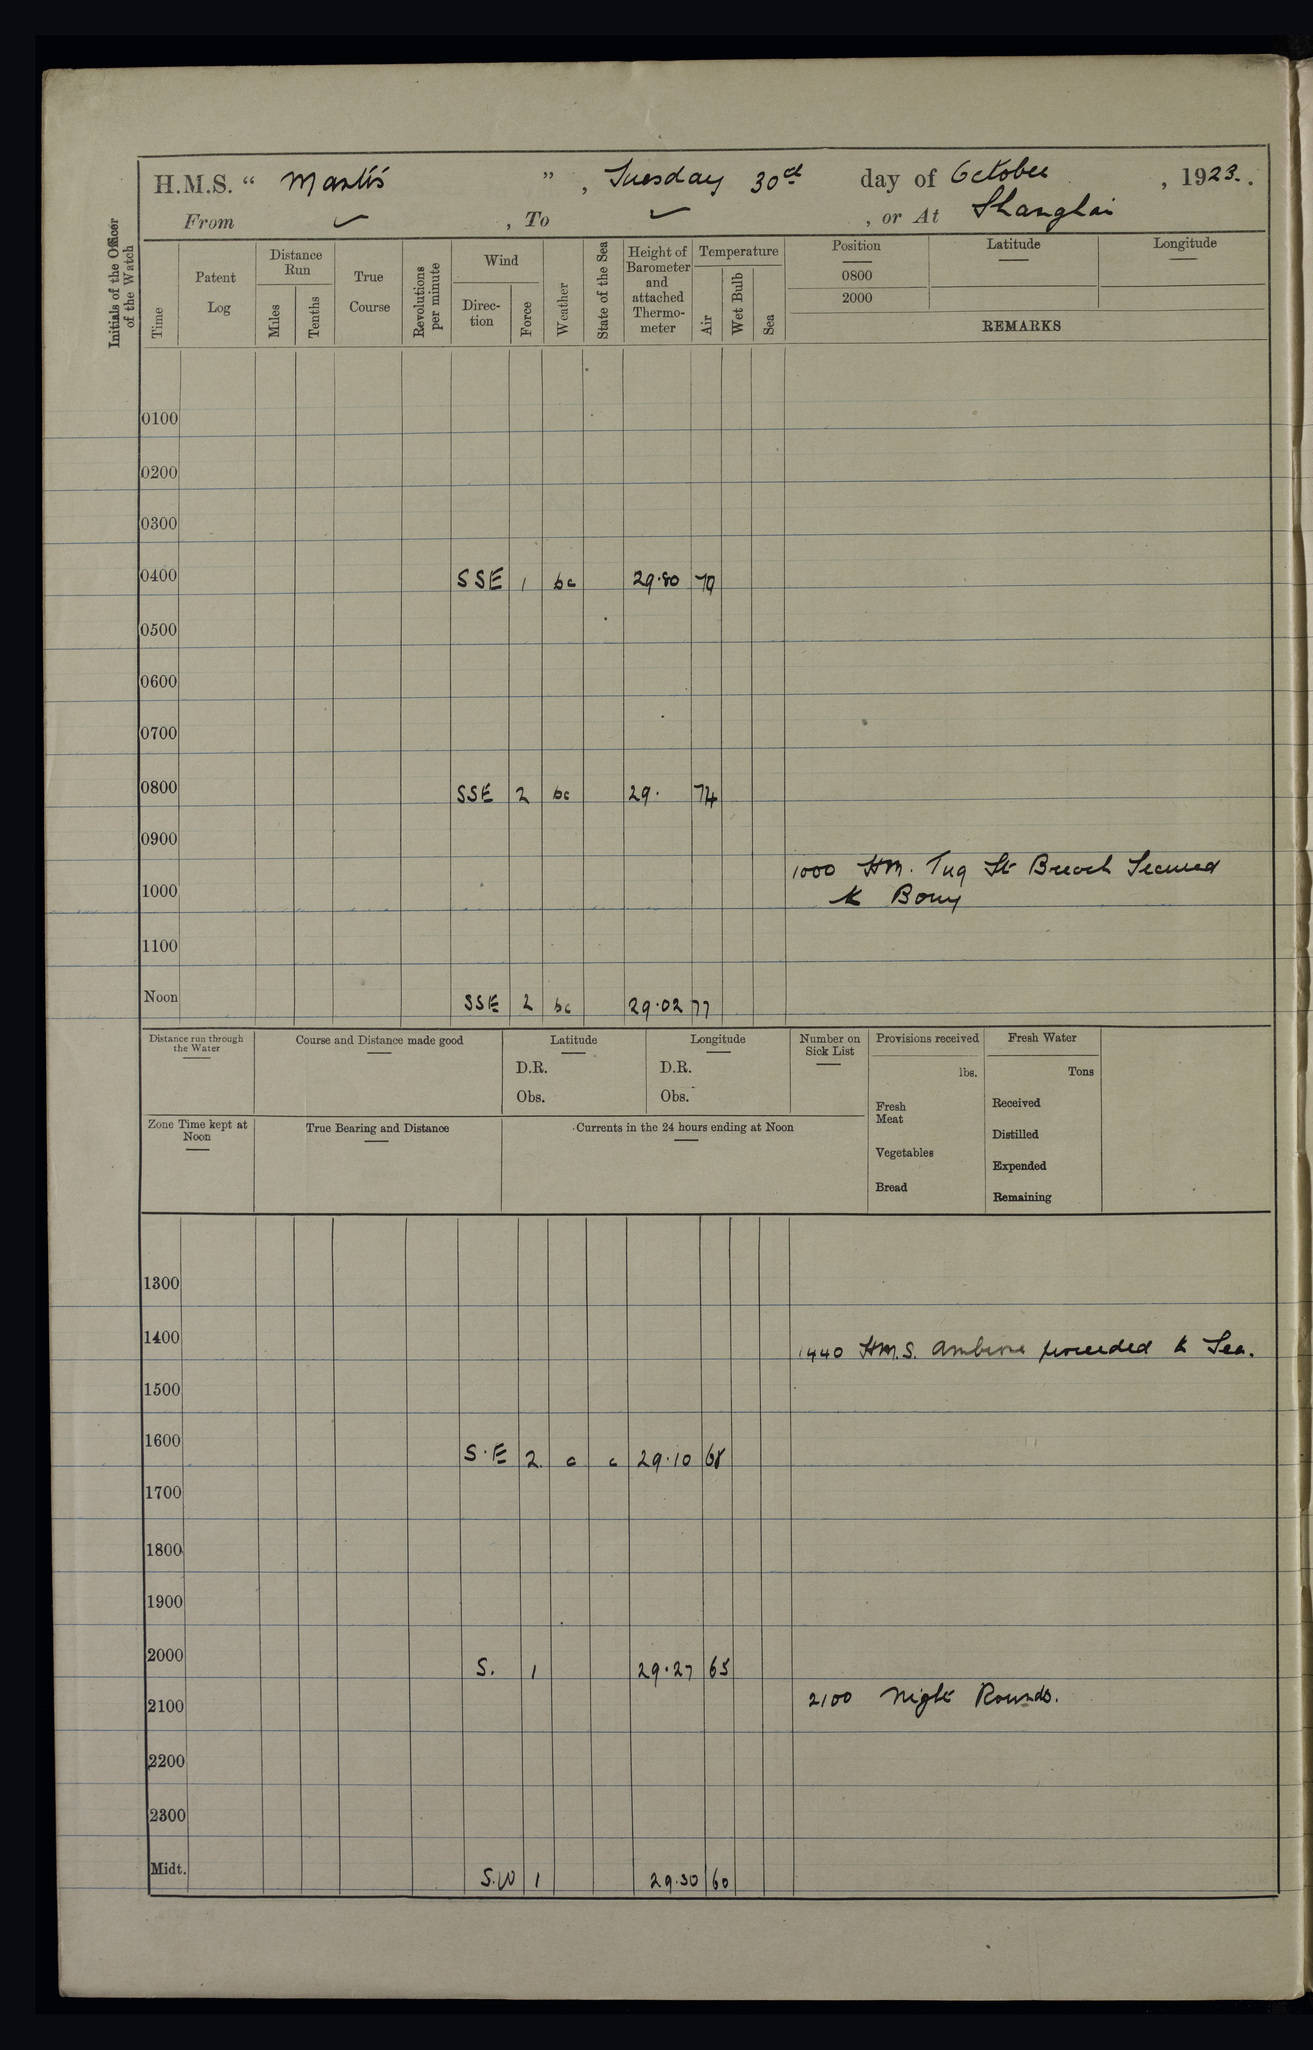 H.M.S. “ Mantis ” , Tuesday 30th day of October , 1923. .
From ✓ , To ✓ , or At Shanghai
Initials of the Officer of the Watch
Time
Patent Log
Distance Run
Miles
Tenths
True Course
Revolutions per minute
Wind
Direc- tion
Force
Weather
State of the Sea
Height of Barometer and attached Thermo- meter
Temperature
Air
Wet Bulb
Sea
Position
Latitude
Longitude
0800
2000
REMARKS
0100
0200
0300
0400 SSE 1 bc 29.80 70
0500
0600
0700
0800 SSE 2 bc 29. 74
0900
1000 H.M. Tug St Breock Secured
1000 to Bouy
1100
Noon SSE 2 bc 29.02 77
Distance run through the Water
Course and Distance made good
Latitude
D.R.
Obs.
Longitude
D.R.
Obs.
Number on Sick List
Provisions received
lbs.
Fresh Meat
Vegetables
Bread
Fresh Water
Tons
Received
Distilled
Expended
Remaining
Zone Time kept at Noon
True Bearing and Distance
Currents in the 24 hours ending at Noon
1300
1400 1440 H.M.S. proceeded to Sea.
1500
1600 S.E 2 c c 29.10 68
1700
1800
1900
2000 S. 1 29.27 65
2100 2100 Night Rounds.
2200
2300
Midt. S.W 1 29.30 60